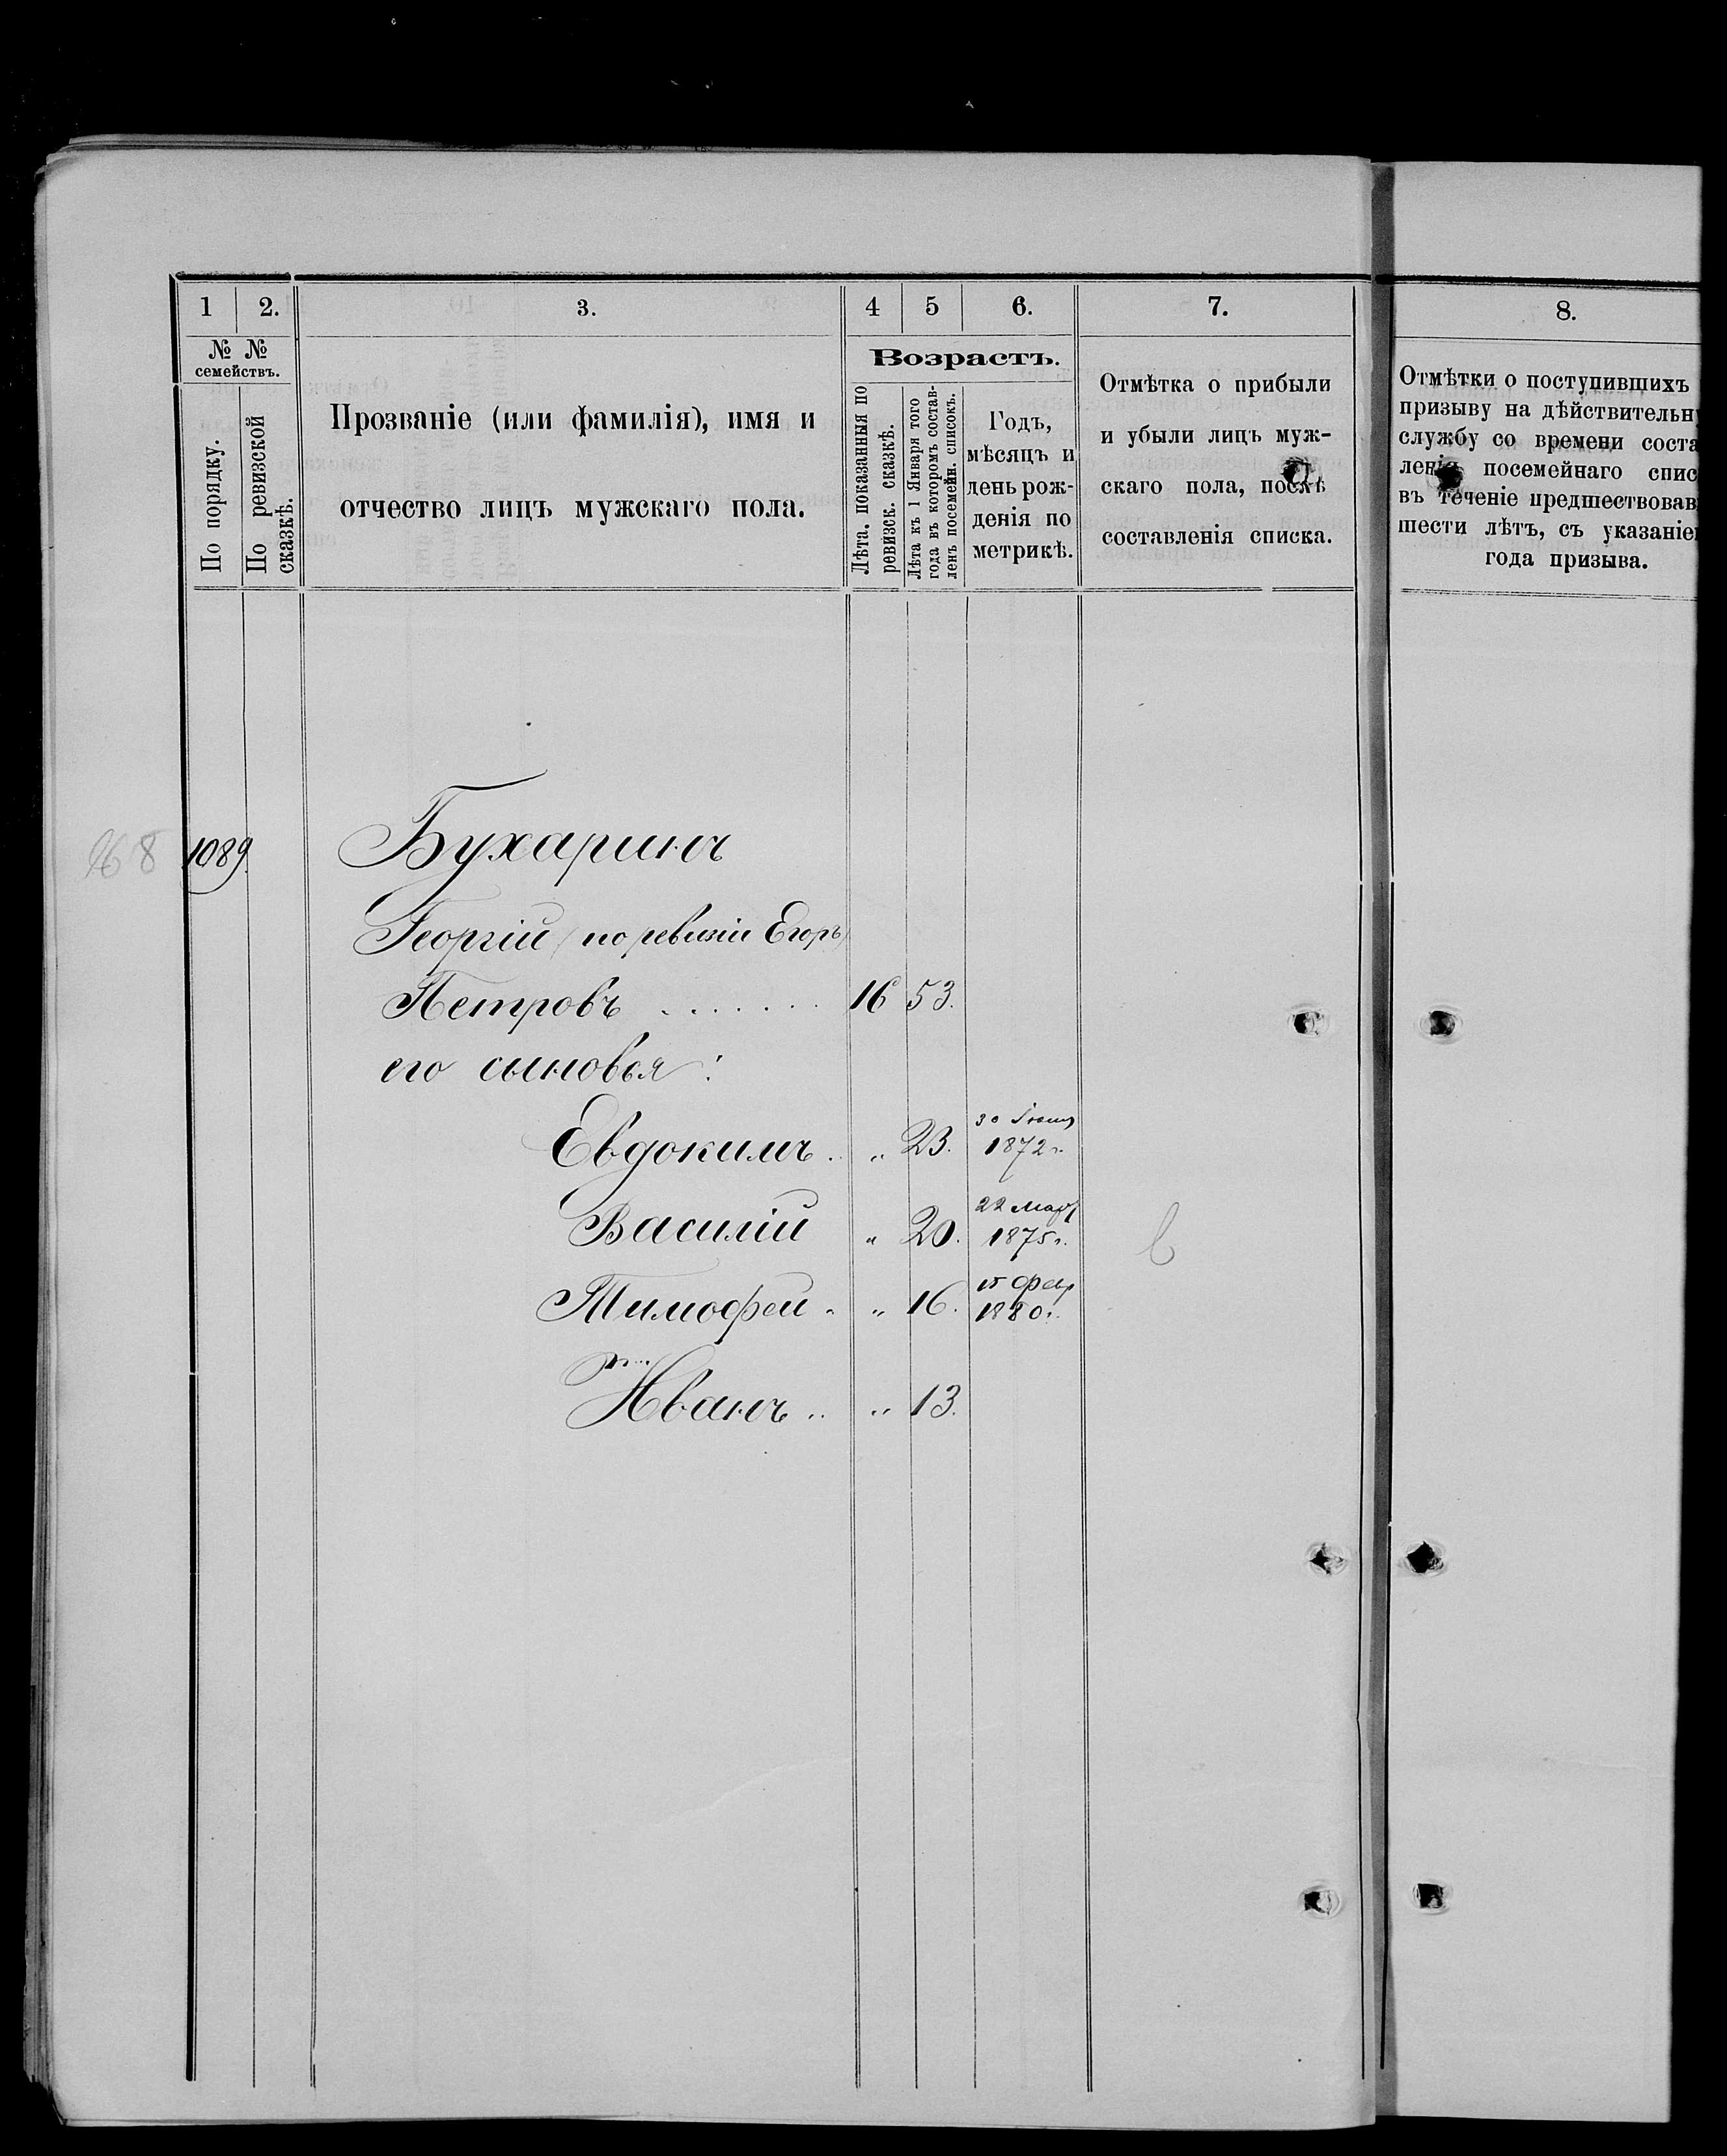 1 2. 3. 4 5 6. 7. 8.
№ № семействъ.
По порядку.
По ревизской сказкѣ.
Прозваніе (или фамилія), имя и
отчество лицъ мужскаго пола.
Возрастъ.
Лѣта, показанныя по
ревизск. сказкѣ.
Лѣта къ 1 Января того
года въ которомъ состав-
ленъ посемейн. списокъ.
Годъ,
мѣсяцъ и
день рож-
денія по
метрикѣ.
Отмѣтка о прибыли
и убыли лицъ муж-
скаго пола, послѣ
составленія списка.
Отмѣтки о поступившихъ
призыву на дѣйствительн
службу со времени соста
ленія посемейнаго спис
въ теченіе предшествовав
шести лѣтъ, съ указаніе
года призыва.
1089. Бухаринъ
Георгій (по ревизіи Егоръ)
Петровъ . . . . . . . 16 53.
его сыновья:
30
Евдокимъ .. „ 23. 1872 г.
22 Мар
Василій „ 20. 1875 г.
15 Фев
Тимофей „ „ 16. 1880 г.
Иванъ .. „ 13.